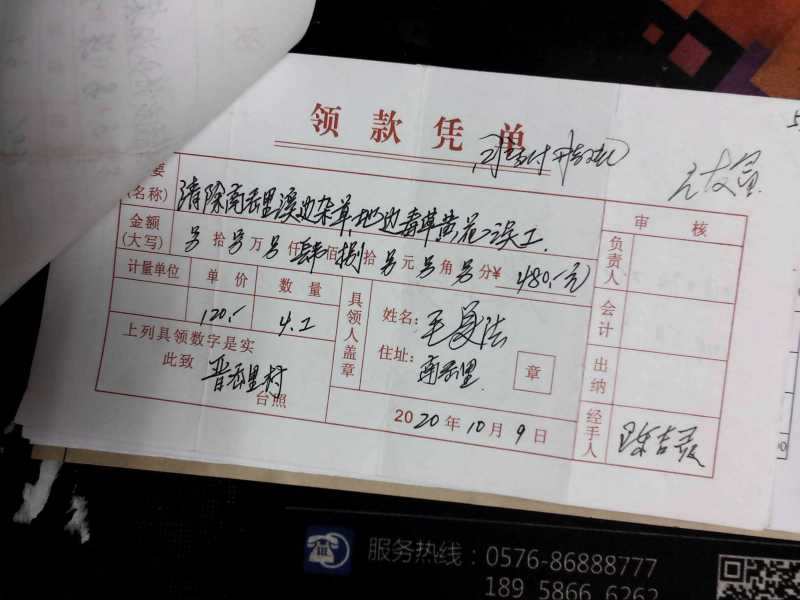 领款凭单
要
(名称)
清除南岙里溪边杂草,地边毒草黄花误工.
审核
金额
(大写) 另拾另万另仟肆佰捌拾另元另角另分¥ 480.-元
负责人
计量单位 单价 数量
120.- 4.工
具领人盖章
姓名: 王夏法
住址: 南岙里
章
会计
上列具领数字是实
此致
岙里村
台照
出纳
2020年10月9日
经手人
服务热线:0576-86888777
189 5866 6262